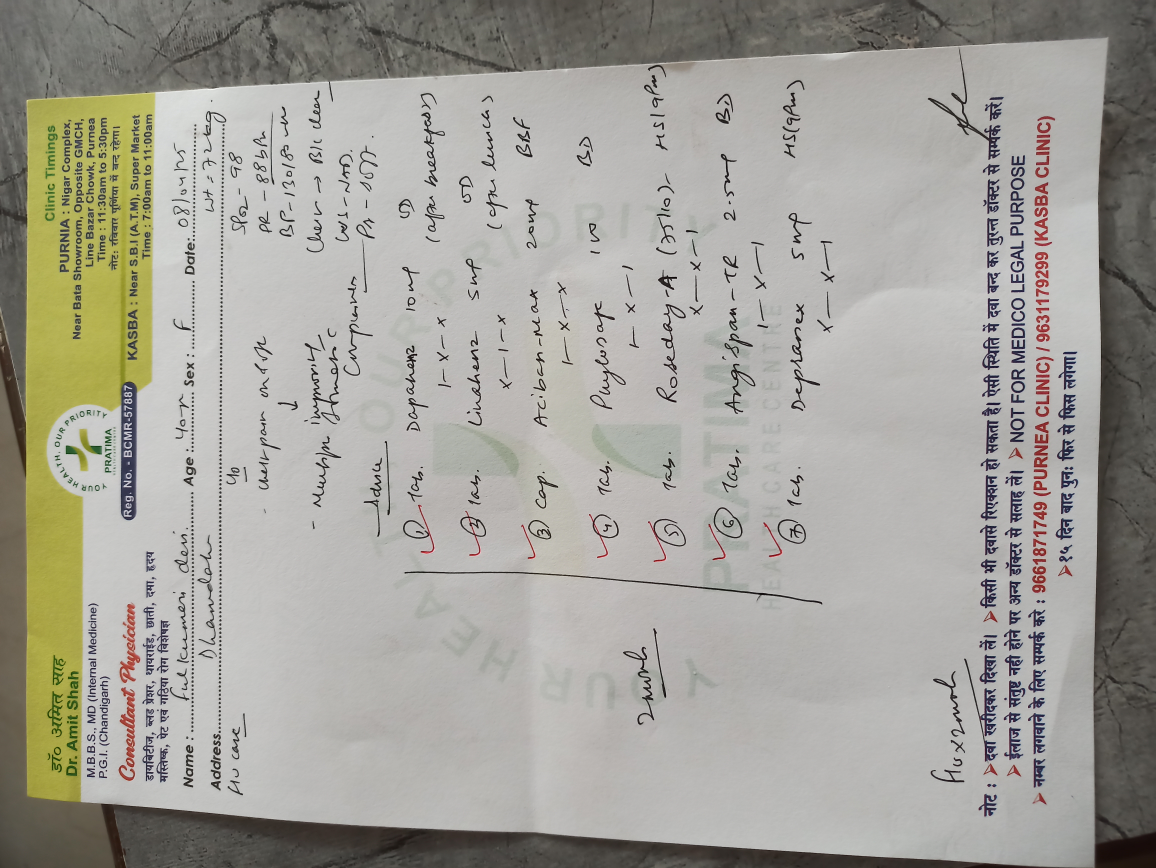 डॉ० अमित साह
Dr. Amit Shah
M.B.B.S., MD (Internal Medicine)
P.G.I. (Chandigarh)
Consultant Physician
डायबिटीज, ब्लड प्रेशर, थायराईड, छाती, दमा, हृदय
मस्तिष्क, पेट एवं गठिया रोग विशेषज्ञ
YOUR HEALTH, OUR PRIORITY
PRATIMA
Reg. No. - BCMR-57887
Clinic Timings
PURNIA : Nigar Complex,
Near Bata Showroom, Opposite GMCH,
Line Bazar Chowk, Purnea
Time : 11:30am to 5:30pm
नोट: रविवार पूर्णिया में बन्द रहेगा।
KASBA : Near S.B.I (A.T.M), Super Market
Time : 7:00am to 11:00am
Name : Fulkumari devi Age : 40yr Sex : F Date:
Address Dhamdah
SPO2 - 98
PR - 88 bpm
BP - 130/80
Chest → B/L clear
- chest pain
- multiple improving
Advice
① Tab. Dapahenz 10mg OD
1-x-x (after breakfast)
② Tab. Linahenz 5mg OD
x-1-x (after lunch)
③ Cap. 20mg BBF
1-x-x
④ Tab. BD
1-x-1
⑤ Tab. Roseday-A HS(9Pm)
x-x-1
⑥ Tab. Angispan-TR 2.5mg BD
1-x-1
⑦ Tab. 5mg HS(9Pm)
x-x-1
2 month
YOUR HEALTH, OUR PRIORITY
PRATIMA
HEALTH CARE CENTRE
नोट : ➤ दवा खरीदकर दिखा लें। ➤ किसी भी दवासे रिएक्शन हो सकता है। ऐसी स्थिति में दवा बन्द कर तुरन्त डॉक्टर से सम्पर्क करें।
➤ ईलाज से संतुष्ट नही होने पर अन्य डॉक्टर से सलाह लें। ➤ NOT FOR MEDICO LEGAL PURPOSE
➤ नम्बर लगवाने के लिए सम्पर्क करे : 9661871749 (PURNEA CLINIC) / 9631179299 (KASBA CLINIC)
➤ १५ दिन बाद पुनः फिर से फिस लगेगा।